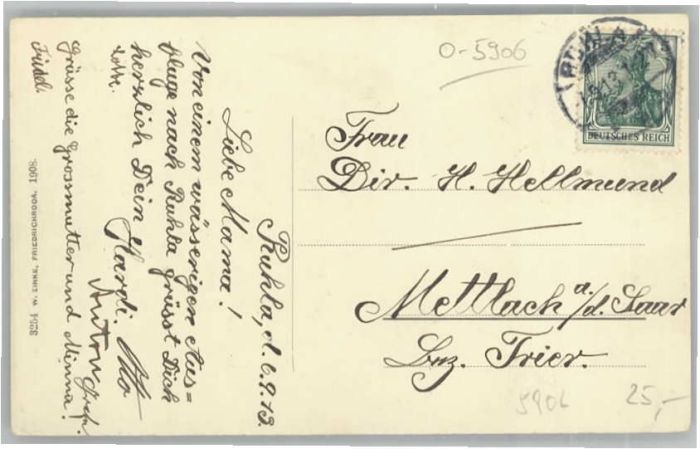 Ruhla, d. 6.9.13.
Liebe Mama!
Von einem wässerigen Aus=
fluge nach Ruhla grüsst Dich
herzlich Dein Hardi. Otto
Anton
Grüsse die Grossmutter und Minna!
3264 W. ZINKE, FRIEDRICHRODA. 1908.
O-5906
DEUTSCHES REICH
Frau
Dir. H. Hellmund
Mettlach a/d. Saar
Bez. Trier.
5906
25,-